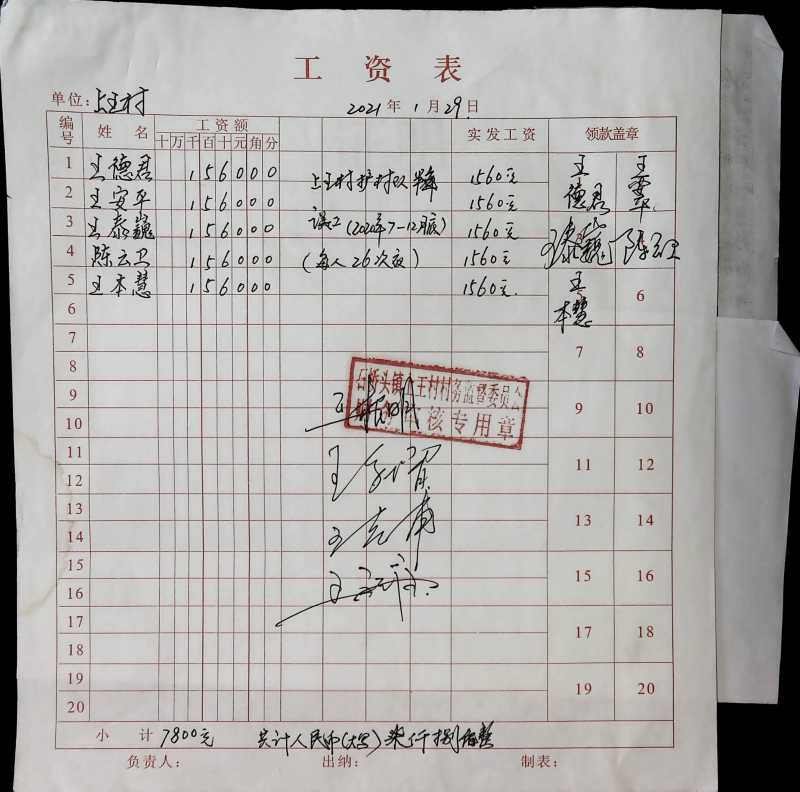 工资表
单位：上王村 2021年1月29日
编号 姓名 工资额 实发工资 领款盖章
十万千百十元角分
1 王德君 156000 上王村护村队 1560元 王德君 王
2 王安平 156000 1560元
3 王泰巍 156000 误工(2020年7-12月底) 1560元 王泰巍 陈云卫
4 陈云卫 156000 (每人26次夜) 1560元
5 王本慧 156000 1560元 王本慧 6
6
7 7 8
8
9 石桥头镇上王村村务监督委员会 9 10
10 审核专用章
11 11 12
12 王
13 13 14
14 王克甫
15 15 16
16 王
17 17 18
18
19 19 20
20
小计 7800元 共计人民币(大写)柒仟捌佰整
负责人： 出纳： 制表：